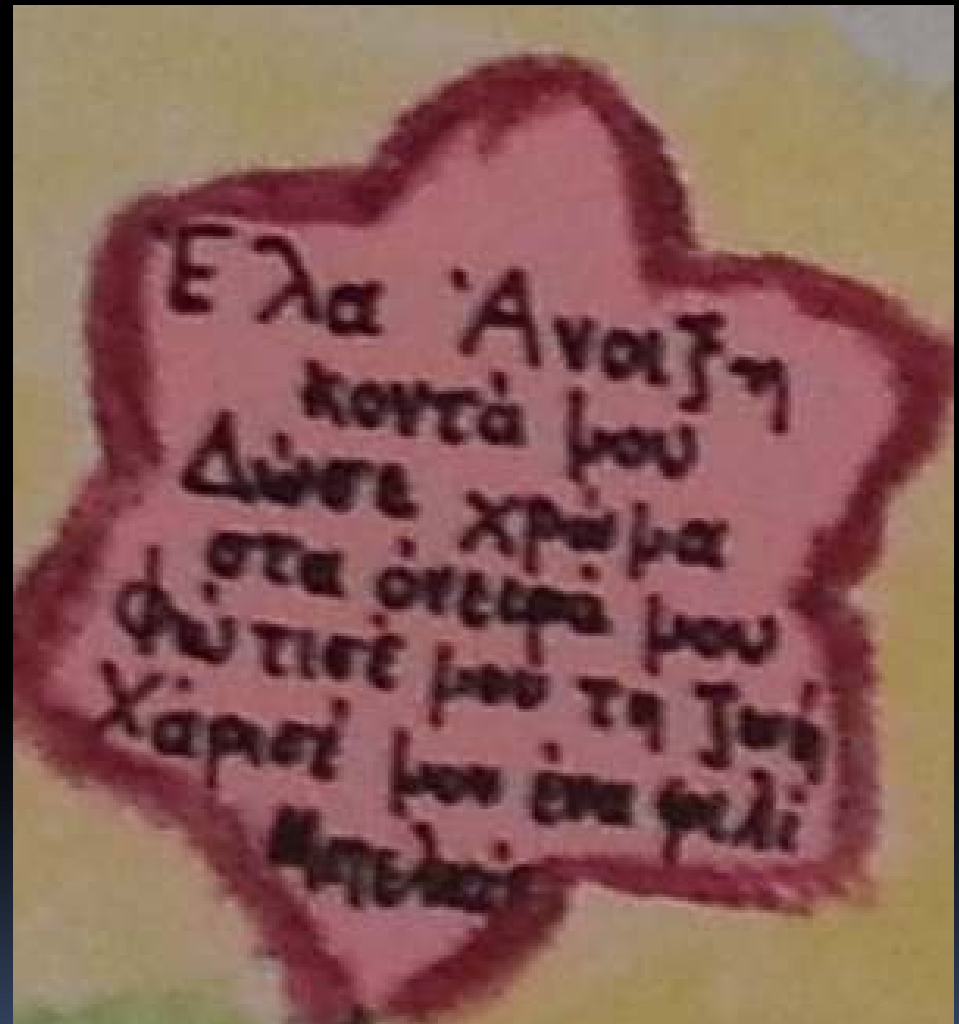 Έλα Άνοιξη
κοντά μου
Δώσε χρώμα
στα όνειρά μου
Φώτισέ μου τη ζωή
Χάρισέ μου ένα φιλί